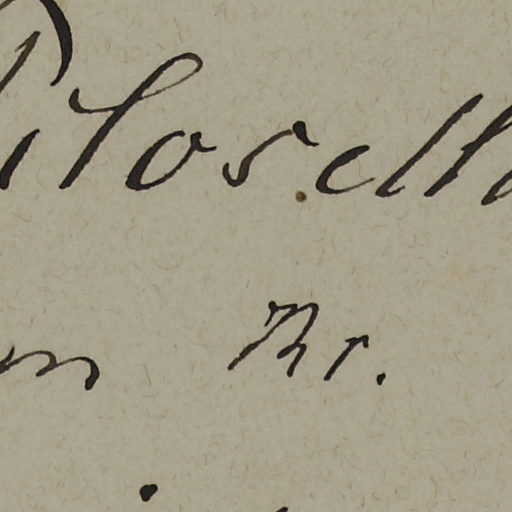 Pilosella
m Fr.